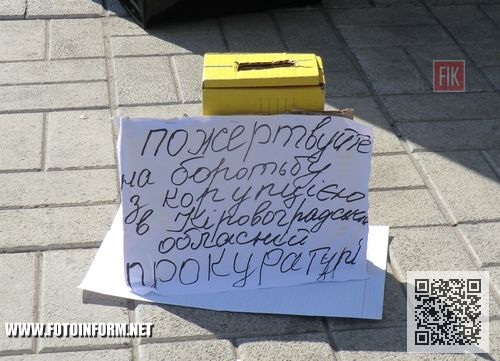 FIK
пожертвуйте
на боротьбу
з корупцією
в Кіровоградській
обласній
прокуратурі
WWW.FOTOINFORM.NET